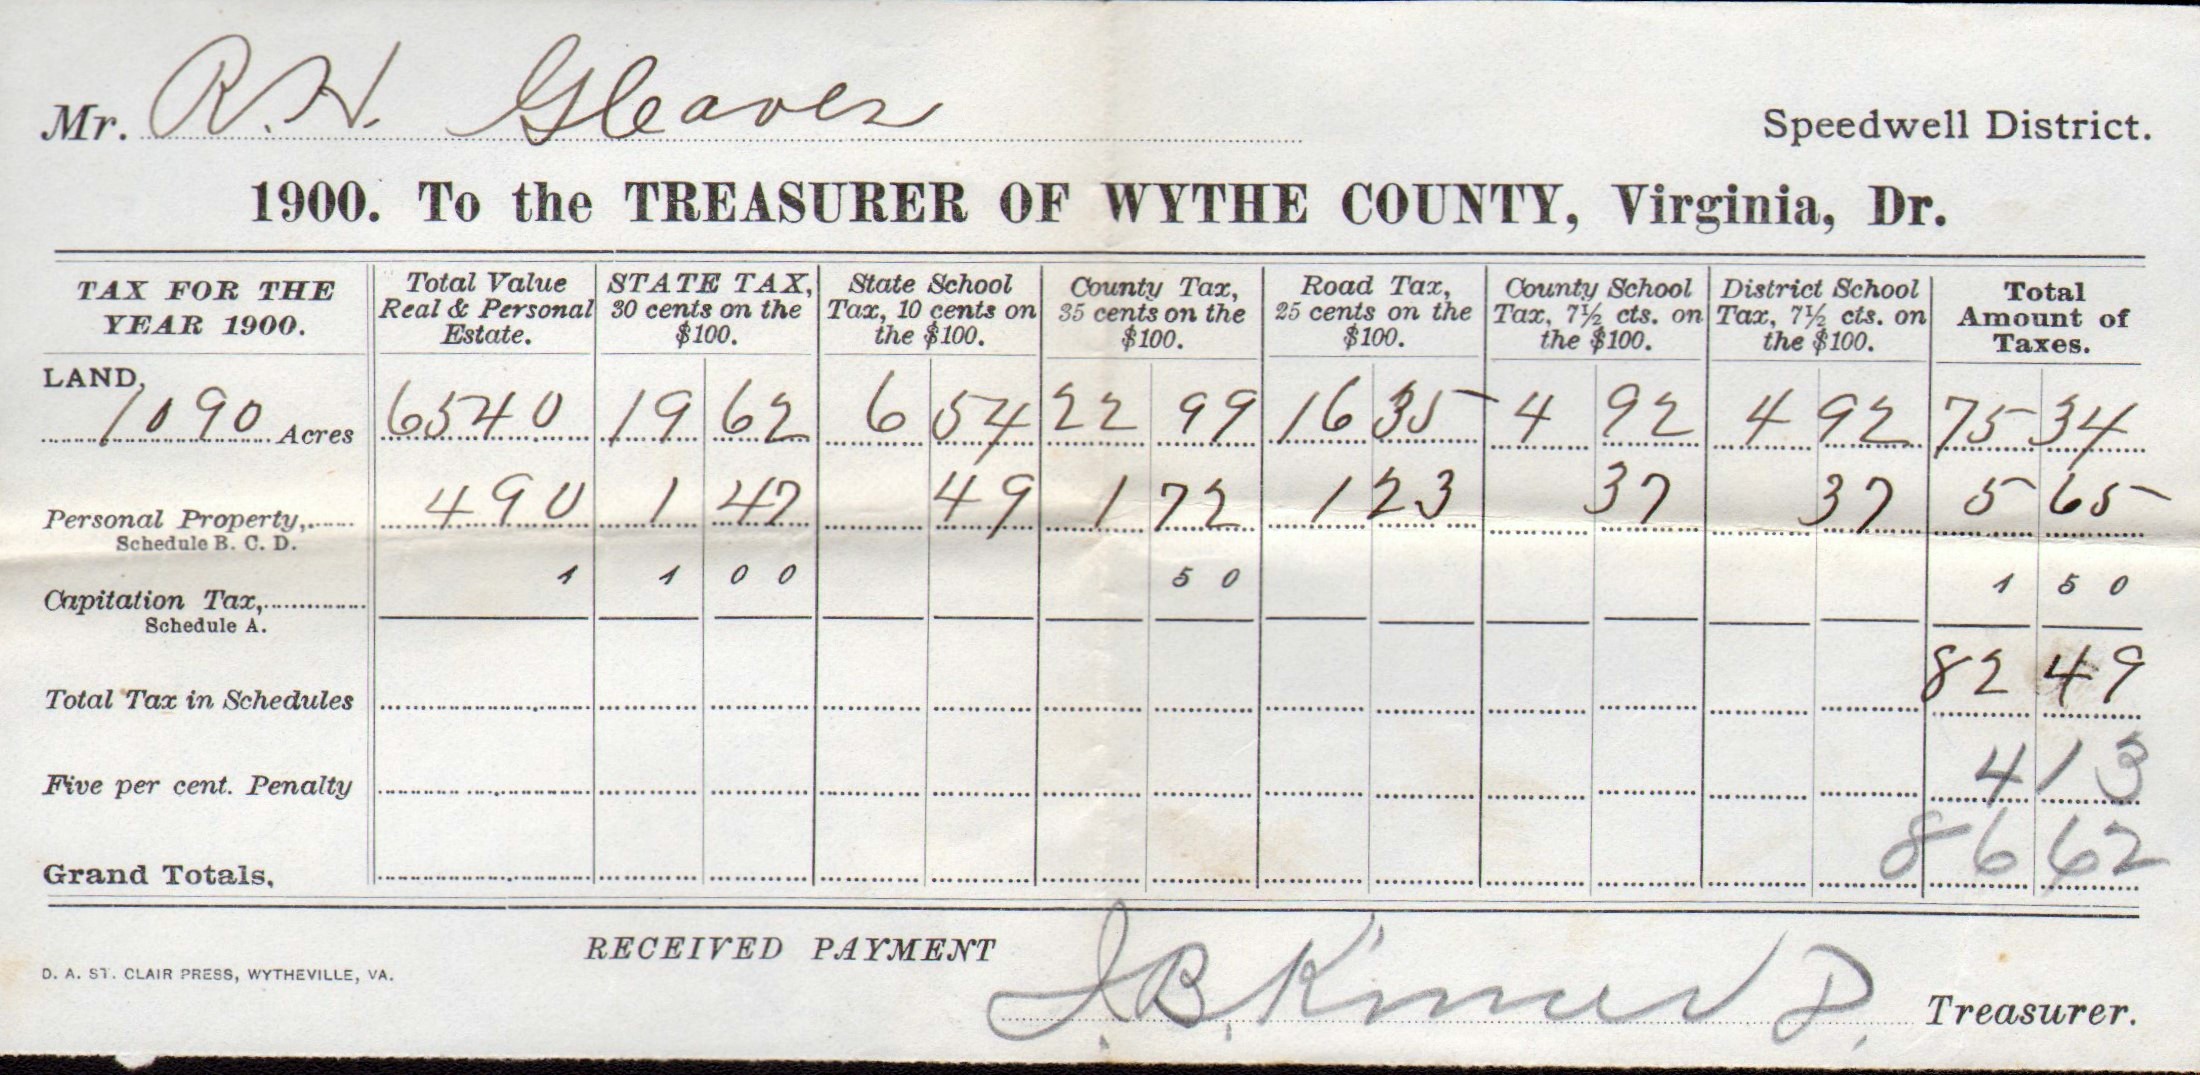 Mr. R. H. Gleaves
Speedwell District.
1900. To the TREASURER OF WYTHE COUNTY, Virginia, Dr.
TAX FOR THE YEAR 1900. Total Value Real & Personal Estate. STATE TAX, 30 cents on the $100. State School Tax, 10 cents on the $100. County Tax, 35 cents on the $100. Road Tax, 25 cents on the $100. County School Tax, 7½ cts. on the $100. District School Tax, 7½ cts. on the $100. Total Amount of Taxes.
LAND,
1090 Acres 6540 19 62 6 54 22 99 16 35 4 92 4 92 75 34
Personal Property, 490 1 47 49 1 72 1 23 37 37 5 65
Schedule B. C. D.
Capitation Tax, 1 1 00 50 1 50
Schedule A.
Total Tax in Schedules 82 49
Five per cent. Penalty 4 13
Grand Totals, 86 62
RECEIVED PAYMENT
D. A. ST. CLAIR PRESS, WYTHEVILLE, VA.
Treasurer.